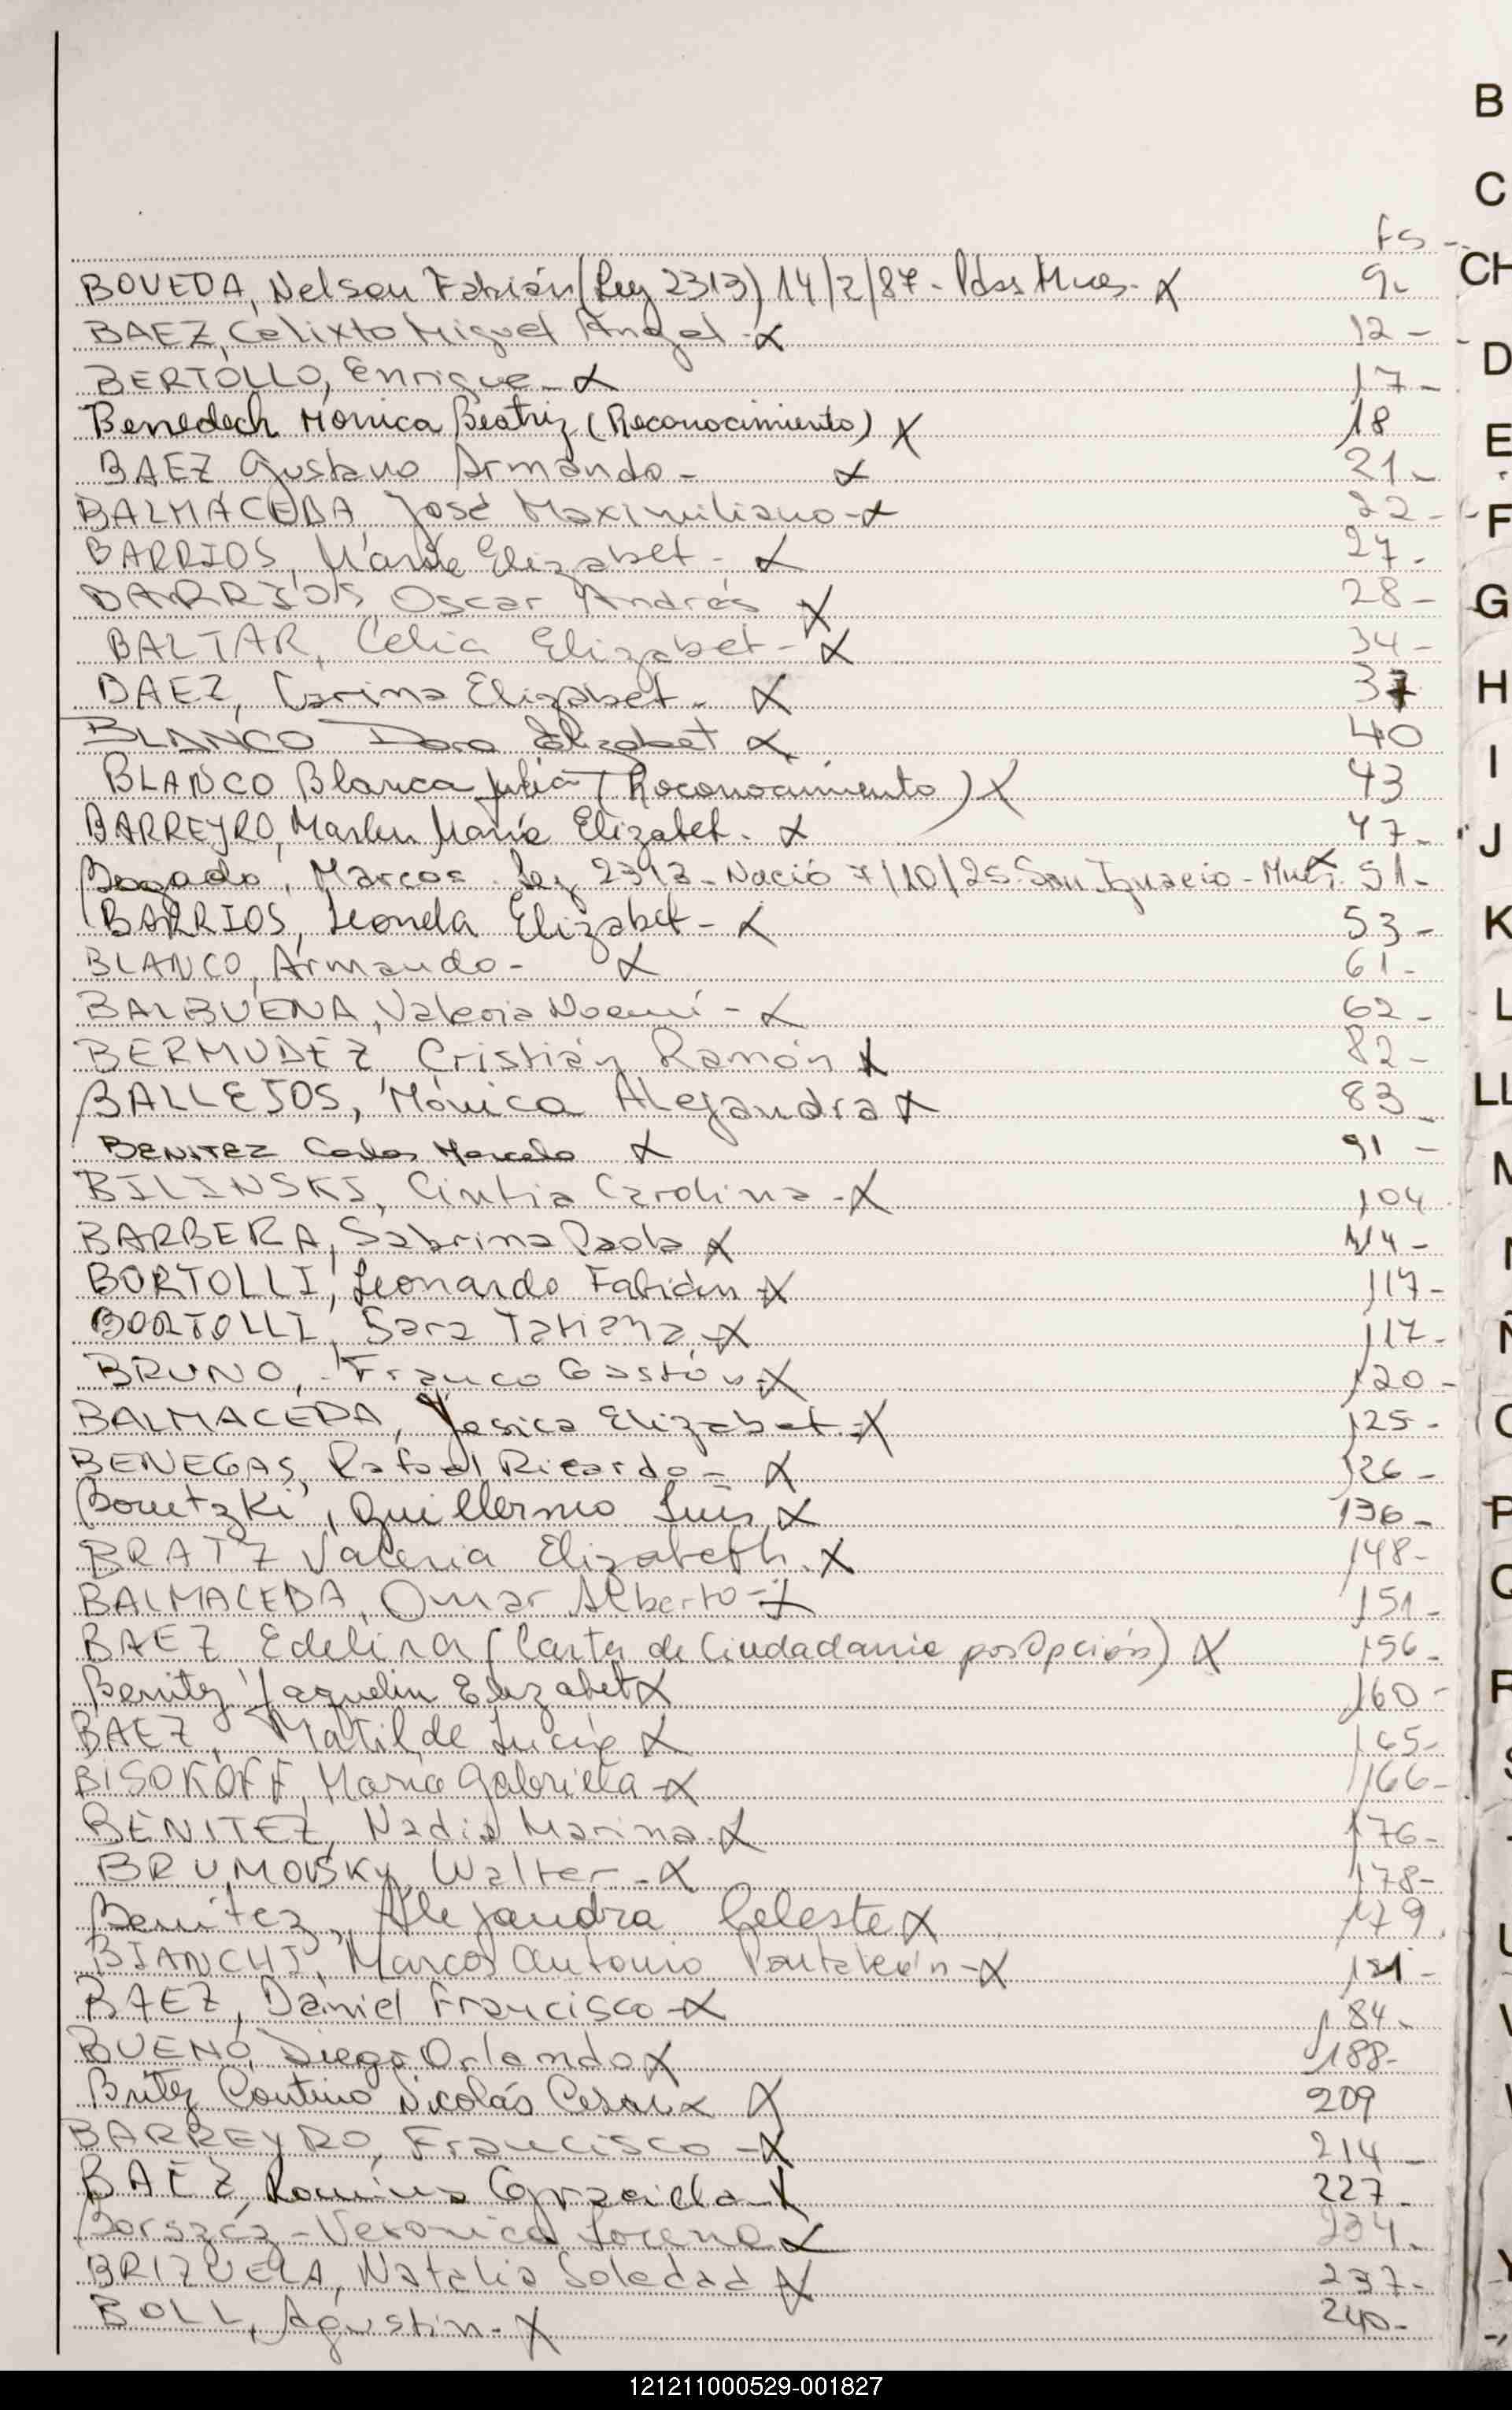 B
C
Fs -
CH
BOVEDA, Nelson Fabián (Ley 2313) 14/2/87 - Pdas Mnes - X 9-
BAEZ, Calixto Miguel Angel - X 12 -
D
BERTOLLO, Enrique - X 17 -
Benedech Monica Beatriz (Reconocimiento) X 18
E
BAEZ Gustavo Armando - X 21 -
BALMACEDA José Maximiliano - X 22 -
F
BARRIOS, María Elizabet - X 27 -
BARRIOS Oscar Andrés X 28 -
G
BALTAR, Celia Elizabet - X 34 -
BAEZ, Carina Elizabet - X 37
H
BLANCO Dora Elizabet X 40
BLANCO Blanca Julia (Reconocimiento) X 43
I
BARREYRO, Marlen María Elizabet - X 47 -
J
Bogado, Marcos - Ley 2313 - Nació 7/10/25 San Ignacio - Mnes. X 51 -
BARRIOS, Leonela Elizabet - X 53 -
K
BLANCO, Armando - X 61 -
BALBUENA, Valeria Noemí - X 62 -
L
BERMUDEZ Cristián Ramón X 82 -
BALLEJOS, Mónica Alejandra X 83 -
LL
BENITEZ Carlos Marcelo X 91 -
BILINSKI, Cintia Carolina - X 104
BARBERA, Sabrina Paola X 114 -
BORTOLLI, Leonardo Fabián - X 117 -
BORTOLLI, Sara Tatiana - X 117 -
BRUNO, Franco Gastón - X 120 -
BALMACEDA, Yesica Elizabet - X 125 -
BENEGAS, Rafael Ricardo - X 126 -
Bonetzki, Guillermo Luis X 136 -
P
BRATZ Valeria Elizabeth - X 148 -
BALMACEDA, Omar Alberto - X 151 -
BAEZ Edelira (Carta de Ciudadanía por Opción) X 156 -
Benitez Yaquelin Elizabet X 160 -
BAEZ, Matilde Lucía X 165 -
BISOKOFF, María Gabriela - X 166 -
BENITEZ, Nadia Marina - X 176 -
BRUMOVSKY, Walter - X 178 -
Benitez, Alejandra Celeste X 179
BIANCHI, Marcos Antonio Pantaleón - X 181 -
BAEZ, Daniel Francisco - X 184 -
BUENO, Diego Orlando X 188 -
Britez Contino Nicolás Cesar X X 209
BARREYRO, Francisco - X 214 -
BAEZ, Romina Graciela - X 227 -
Borszcz - Veronica Lorena X 234 -
BRIZUELA, Natalia Soledad X 237 -
BOLL, Agustin - X 240 -
121211000529-001827